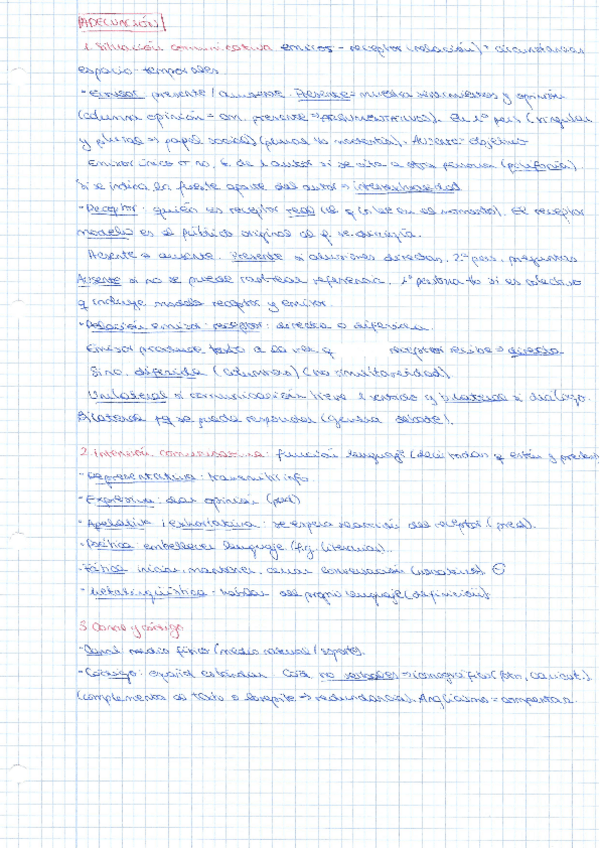 ADECUACIÓN
1. Situación comunicativa emisor - receptor (relación) + circunstancias
espacio-temporales.
- Emisor: presente / ausente. Presente = muestra sentimientos y opinión
(columna opinión = em. presente => argumentativos). En 1ª pers (singular
y plural => papel social) (plural de modestia). Ausente: objetivo
Emisor único o no. 6. de 1 autor si se cita a otra persona (polifonía).
Si se indica la fuente aparte del autor = intertextualidad
- Receptor: quién es receptor real (el q en el momento). El receptor
modelo es el público original al q se dirigía.
Presente o ausente. Presente si alusiones directas, 2ª pers, preguntas
Ausente si no se puede rastrear referencia. 1ª persona si es colectivo
q incluye modelo receptor y emisor.
- Relación emisor: receptor: directa o diferida.
Emisor produce texto a la vez q receptor recibe => directa
Si no, diferida (columnas) (no simultaneidad).
Unilateral si comunicación tiene 1 sentido y bilateral si diálogo.
Bilateral se puede responder (genera debate).
2. Intención comunicativa: función lenguaje (decir todas q estén y
- Representativa: transmitir info.
- Expresiva: dar opinión
- Apelativa / exhortativa: se espera reacción del receptor (pred).
- Poética: embellecer lenguaje. (fig. literarias).
- Fática: iniciar, mantener, cerrar conversación
- Metalingüística: hablar del propio lenguaje (definición)
3. Canal y código
- Canal: medio físico (medio natural / soporte).
- Código: español estándar. Cód. no verbales => iconográfico (fotn, caricat.)
(complementa al texto o lo repite => redundancia). Anglicismo =